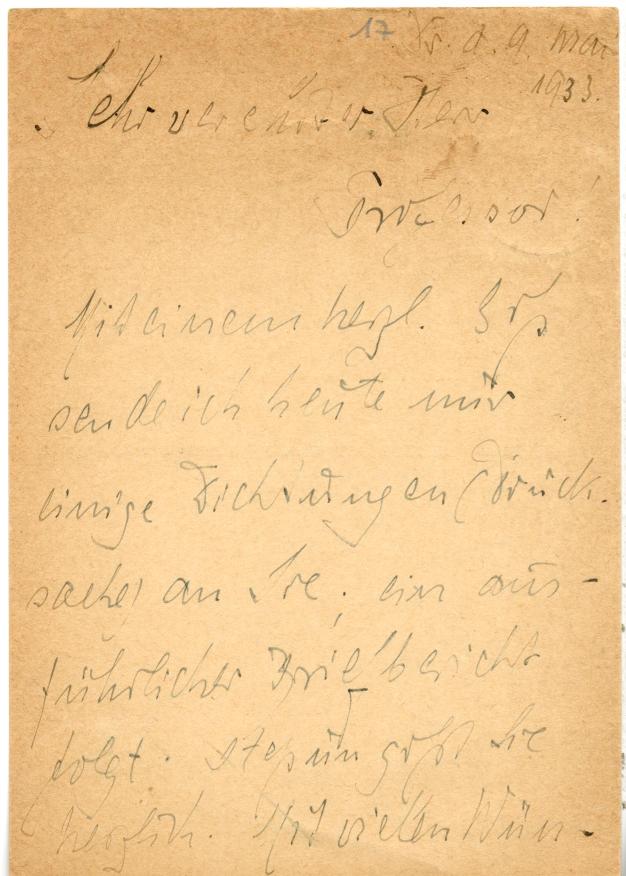 17
Dr. d. 9. Mai
1933.
Sehr verehrter Herr
Professor!
Mit einem herzl. Grß
sende ich heute nur
einige Dichtungen (Druck-
sache) an Sie; ein aus-
führlicher Briefbericht
folgt. Stepun grßt Sie
herzlich. Mit vielen Wün-